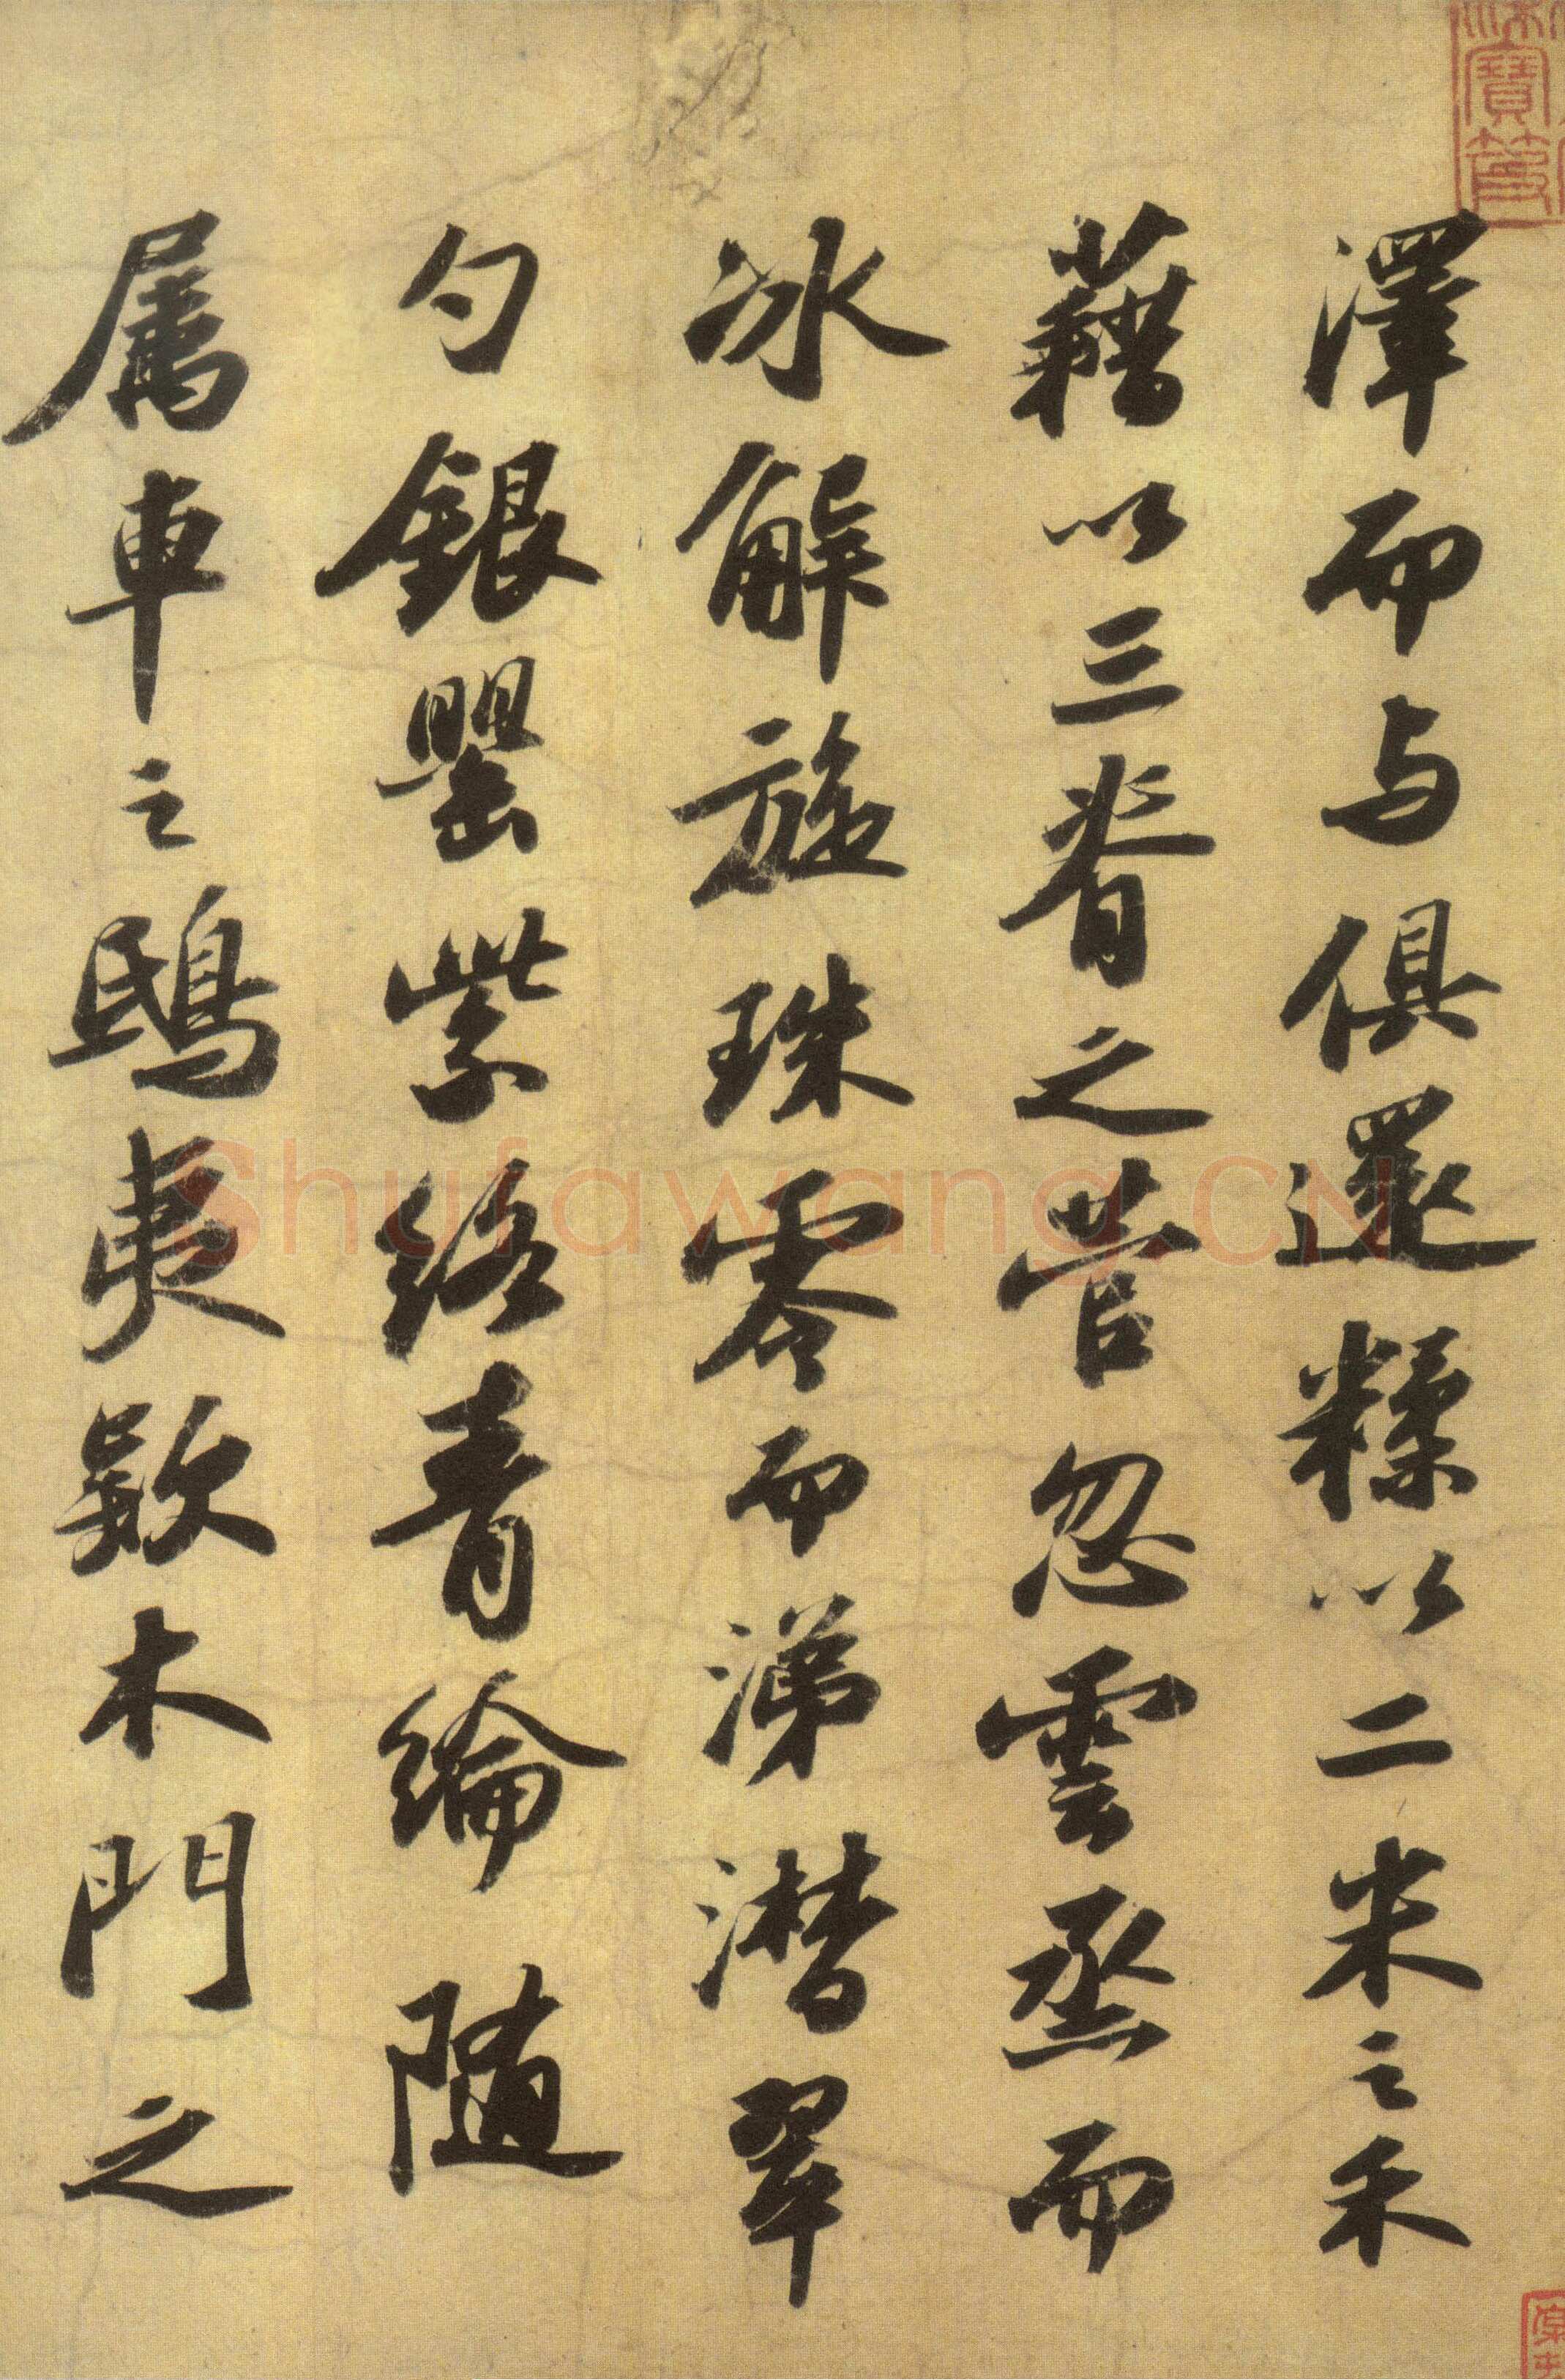 澤而与俱還糅以二米之禾
藉以三脊之菅忽雲烝而
冰解旋珠零而涕潸翠
勺銀罌紫絡青綸隨
属車之鴟夷欵木門之
Shufawang.CN